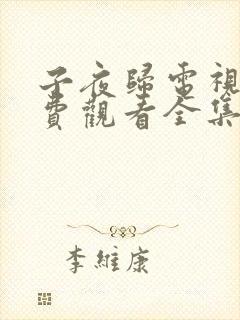 子夜歸電視
費觀看全集
李維康